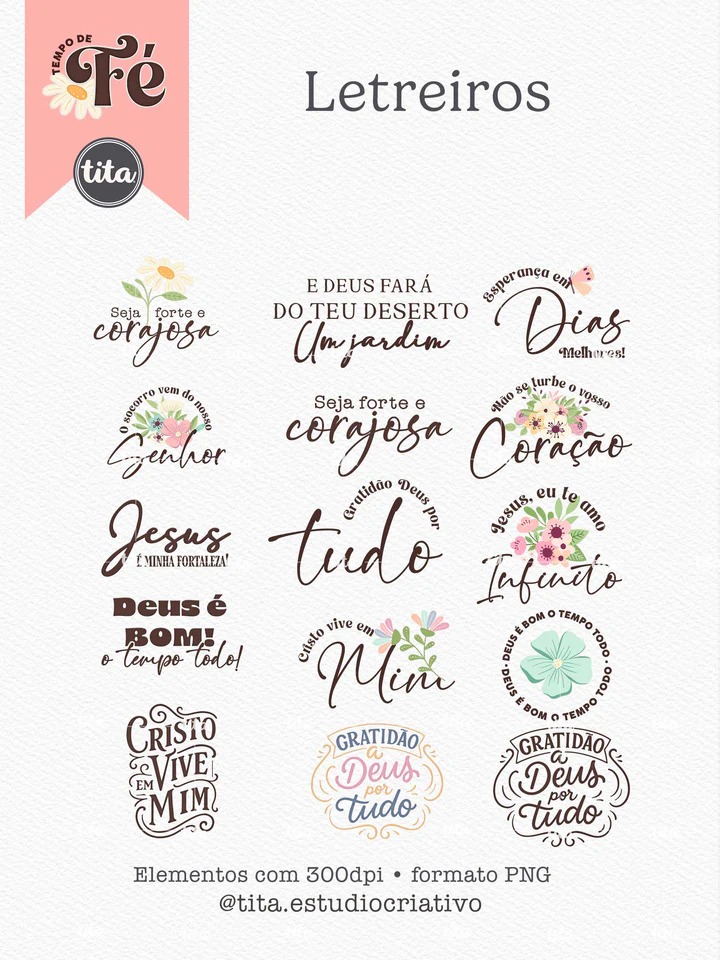 TEMPO DE
Fé
tita
Letreiros
Seja forte e
corajosa
E DEUS FARÁ
DO TEU DESERTO
Um jardim
Esperança em
Dias
Melhores!
O socorro vem do nosso
Senhor
Seja forte e
corajosa
Não se turbe o vosso
Coração
Jesus
É MINHA FORTALEZA!
Gratidão Deus por
tudo
Jesus, eu te amo
Infinito
Deus é
BOM!
o tempo todo!
Cristo vive em
Mim
DEUS É BOM O TEMPO TODO • DEUS É BOM O TEMPO TODO •
CRISTO
VIVE
EM
MIM
GRATIDÃO
a
Deus
por
tudo
GRATIDÃO
a
Deus
por
tudo
Elementos com 300dpi • formato PNG
@tita.estudiocriativo